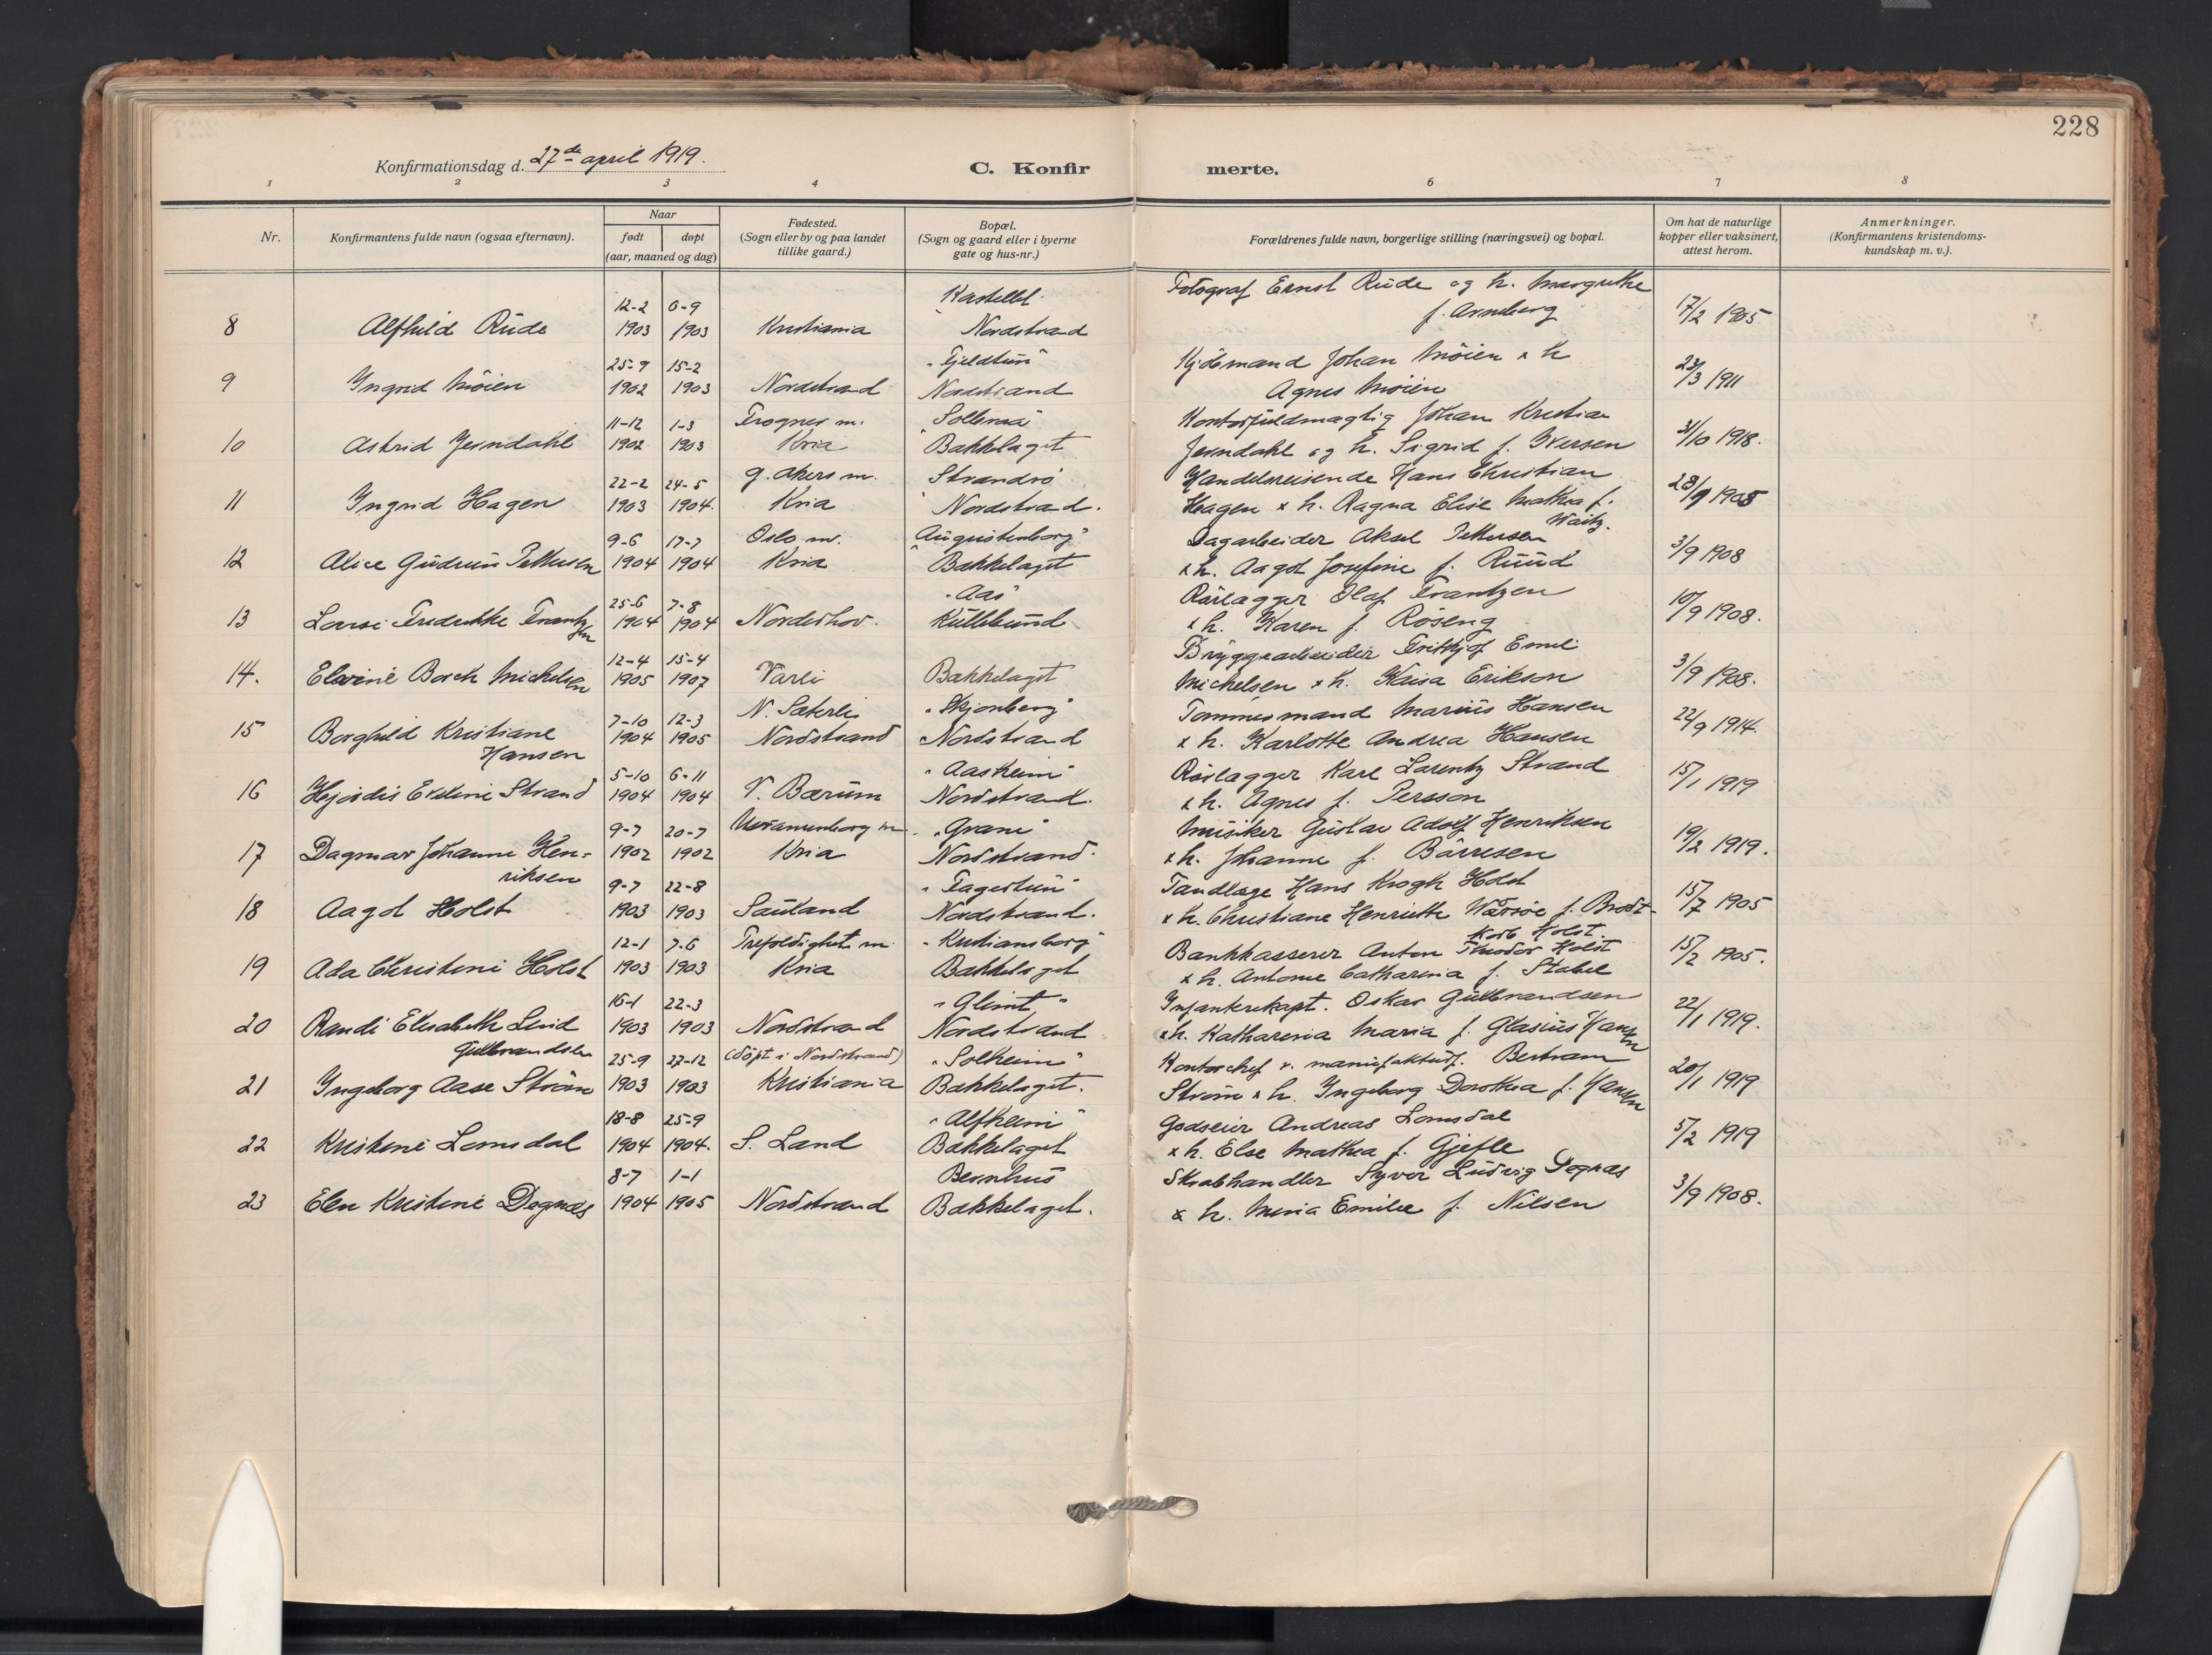 228
Konfirmationsdag d. 27de april 1919.
C. Konfir merte.
1 2 3 4 6 7 8
Nr.
Konfirmantens fulde navn (ogsaa efternavn).
Naar
født døpt
(aar, maaned og dag)
Fødested.
(Sogn eller by og paa landet
tillike gaard.)
Bopæl.
(Sogn og gaard eller i byerne
gate og hus-nr.)
Forældrenes fulde navn, borgerlige stilling (næringsvei) og bopæl.
Om hat de naturlige
kopper eller vaksinert,
attest herom.
Anmerkninger.
(Konfirmantens kristendoms-
kundskap m. v.).
12-2 6-9 Kastellet Fotograf Ernst Rude og h. Margrethe
8 Alfhild Rude 1903 1903 Kristiania Nordstrand f. Arneberg 17/2 1905
25-9 15-2 "Fjeldtun" Kjøbmand Johan Moien x h
9 Yngrid Moien 1902 1903 Nordstrand Nordstrand Agnes Moien 23/3 1911
11-12 1-3 Frogner m. Kontorfuldmagtig Johan Kristian
10 Astrid Jerndahl 1902 1903 Kria Bakkelaget Jerndahl og h. Sigrid f. Iversen 31/10 1918.
22-2 24-5 g. Akers m. Strandro Handelsreisende Hans Christian
11 Yngrid Hagen 1903 1904. Kria Nordstrand. Hagen x h. Ragna Elise Mathea f. 28/9 1905
Waitz.
9-6 17-7 Oslo m. "Augustenborg" Dagarbeider Aksel Pettersen
12 Alice Gudrun Pettersen 1904 1904 Kria Bakkelaget x h. Aagot Josefine f. Ruud 3/9 1908
25-6 7-8 "Aas" Rørlægger Olaf Frantzen
13 Lovise Fredrikke Frantzen 1904 1904 Norderhov. Kullebund x h. Karen f. Røseng 10/9 1908.
12-4 15-4 Bryggearbeider Frithjof Emil
14. Elvine Borch Michelsen 1905 1907 Bakkelaget Michelsen x h. Kaisa Erikson 3/9 1908.
7-10 12-3 N. Sæterli "Skjonberg" Tømmermand Marius Hansen
15 Borghild Kristiane 1904 1905 Nordstrand Nordstrand x h. Karlotte Andrea Hansen 22/9 1914.
Hansen
5-10 6-11 "Aasheim" Rørlægger Karl Larentz Strand
16 Hjørdis Strand 1904 1904 V. Bærum Nordstrand. x h. Agnes f. Persson 15/1 1919
9-7 20-7 "Grani" Musiker Gustav Adolf Henriksen
17 Dagmar Johanne Hen- 1902 1902 Kria Nordstrand. x h. Johanne f. Børresen 19/2 1919.
riksen
9-7 22-8 "Fagertun" Tandlæge Hans Krogh Holst
18 Aagot Holst 1903 1903 Sauland Nordstrand. x h. Christiane Henriette f. Brodt- 15/7 1905
korb Holst.
12-1 7-6 Trefoldighet m. "Kristiansborg" Bankkasserer Anton Theodor Holst
19 Ada Christine Holst 1903 1903 Kria Bakkelaget x h. Antonie Catharina f. Stabel 15/2 1905.
16-1 22-3 "Glimt" Infanterikapt. Oskar Gulbrandsen
20 Randi Elisabeth Lund 1903 1903 Nordstrand Nordstrand x h. Katharina Maria f. Glasius Hansen 22/1 1919.
Gulbrandsen
25-9 27-12 (døpt i Nordstrand) "Solheim" Kontorchef v. manufakturf. Bertram
21 Yngeborg Aase Strøm 1903 1903 Kristiania Bakkelaget. Strøm x h. Yngeborg Dorothea f. Hansen 20/1 1919
18-8 25-9 "Alfheim" Godseier Andreas Lomsdal
22 Kristine Lomsdal 1904 1904. S. Land Bakkelaget x h. Else Mathea f. Gjefle 5/2 1919
8-7 1-1 Bernhus Skrabhandler Syver Ludvig Dognæs
23 Elen Kristine Dognæs 1904 1905 Nordstrand Bakkelaget. x h. Maria Emilie f. Nilsen 3/9 1908.